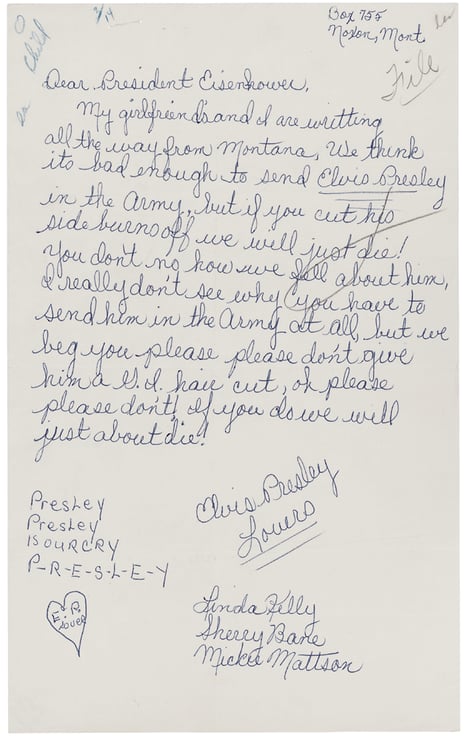 Box 755
Noxon, Mont
Child
File
Dear President Eisenhower,
My girlfriend's and I are writting
all the way from Montana, We think
its bad enough to send Elvis Presley
in the Army, but if you cut his
side burns off we will just die!
You don't no how we fell about him,
I really don't see why you have to
send him in the Army at all, but we
beg you please please don't give
him a G.I. hair cut, oh please
please don't! If you do we will
just about die!
Elvis Presley
Lovers
Presley
Presley
IS OUR CRY
P-R-E-S-L-E-Y
E.P.
Lover
Linda Kelly
Sherry Bane
Mickie Mattson